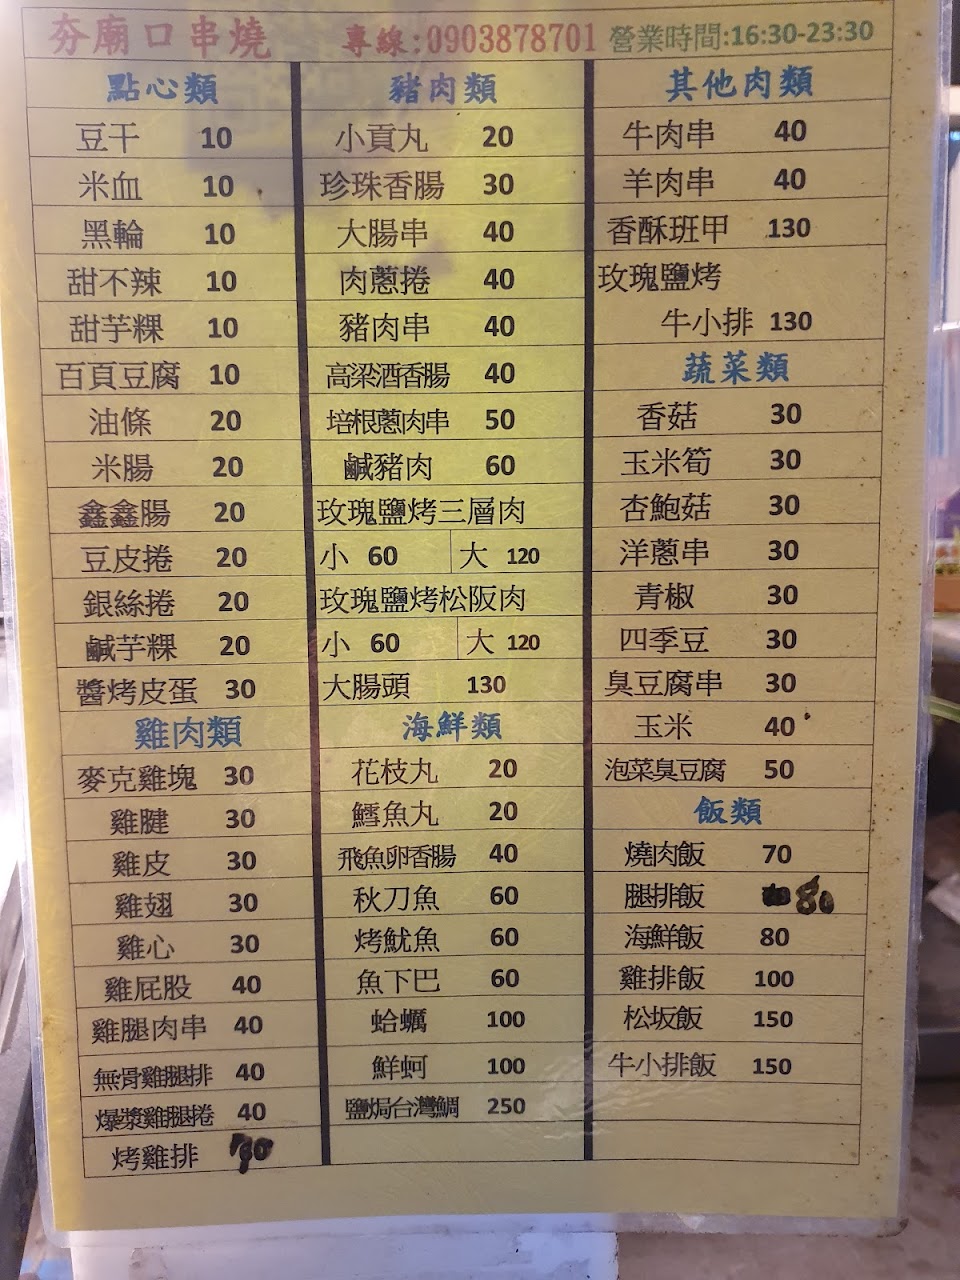 夯廟口串燒 專線:0903878701 營業時間:16:30-23:30
點心類
豆干 10
米血 10
黑輪 10
甜不辣 10
甜芋粿 10
百頁豆腐 10
油條 20
米腸 20
鑫鑫腸 20
豆皮捲 20
銀絲捲 20
鹹芋粿 20
醬烤皮蛋 30
雞肉類
麥克雞塊 30
雞腱 30
雞皮 30
雞翅 30
雞心 30
雞屁股 40
雞腿肉串 40
無骨雞腿排 40
爆漿雞腿捲 40
烤雞排
豬肉類
小貢丸 20
珍珠香腸 30
大腸串 40
肉蔥捲 40
豬肉串 40
高梁酒香腸 40
培根蔥肉串 50
鹹豬肉 60
玫瑰鹽烤三層肉
小 60 大 120
玫瑰鹽烤松阪肉
小 60 大 120
大腸頭 130
海鮮類
花枝丸 20
鱈魚丸 20
飛魚卵香腸 40
秋刀魚 60
烤魷魚 60
魚下巴 60
蛤蠣 100
鮮蚵 100
鹽焗台灣鯛 250
其他肉類
牛肉串 40
羊肉串 40
香酥班甲 130
玫瑰鹽烤
牛小排 130
蔬菜類
香菇 30
玉米筍 30
杏鮑菇 30
洋蔥串 30
青椒 30
四季豆 30
臭豆腐串 30
玉米 40
泡菜臭豆腐 50
飯類
燒肉飯 70
腿排飯 80
海鮮飯 80
雞排飯 100
松坂飯 150
牛小排飯 150